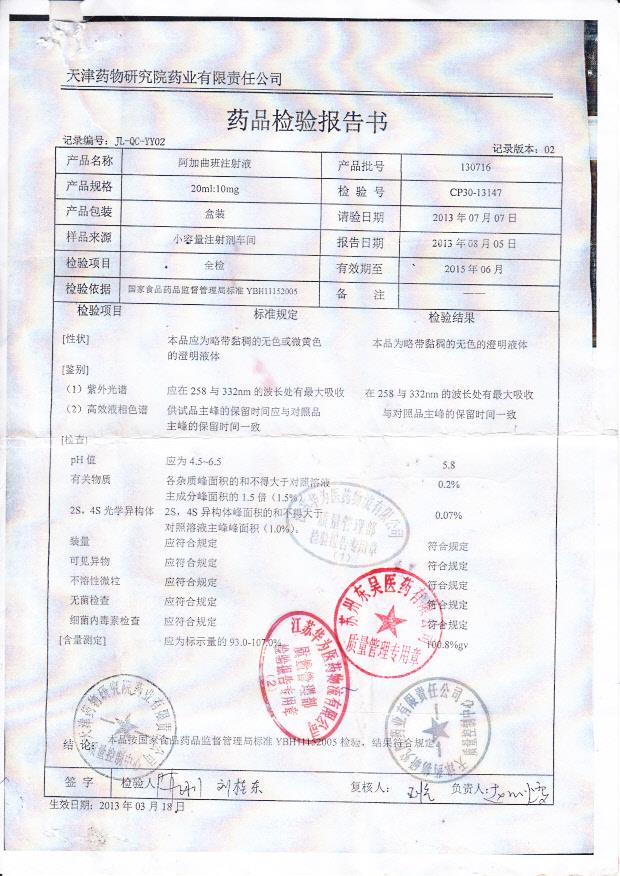 天津药物研究院药业有限责任公司
药品检验报告书
记录编号：JL-QC-YY02 记录版本：02
产品名称 阿加曲班注射液 产品批号 130716
产品规格 20ml:10mg 检验号 CP30-13147
产品包装 盒装 请验日期 2013年07月07日
样品来源 小容量注射剂车间 报告日期 2013年08月05日
检验项目 全检 有效期至 2015年06月
检验依据 国家食品药品监督管理局标准YBH11152005 备注 ——
检验项目 标准规定 检验结果
[性状] 本品应为略带黏稠的无色或微黄色 本品为略带黏稠的无色的澄明液体
的澄明液体
[鉴别]
（1）紫外光谱 应在258与332nm的波长处有最大吸收 在258与332nm的波长处有最大吸收
（2）高效液相色谱 供试品主峰的保留时间应与对照品 与对照品主峰的保留时间一致
主峰的保留时间一致
[检查]
pH值 应为4.5~6.5 5.8
有关物质 各杂质峰面积的和不得大于对照溶液 0.2%
主成分峰面积的1.5倍（1.5%）
2S，4S光学异构体 2S，4S异构体峰面积的和不得大于 0.07%
对照溶液主峰峰面积（1.0%）。
装量 应符合规定 符合规定
可见异物 应符合规定 符合规定
不溶性微粒 应符合规定 符合规定
无菌检查 应符合规定 符合规定
细菌内毒素检查 应符合规定 符合规定
[含量测定] 应为标示量的93.0-107.0% 100.8%gv
华为医药物流有限公司
质量管理部
检验报告专用章
（1）
苏州东吴医药有限公司
质量管理专用章
江苏华为医药物流有限公司
质量管理部
检验报告专用章
（2）
天津药物研究院药业有限责任公司
天津药物研究院药业有限责任公司
结论：本品按国家食品药品监督管理局标准YBH11152005检验，结果符合规定
签字 检验人： 刘桂东 复核人： 负责人：
生效日期：2013年03月18日